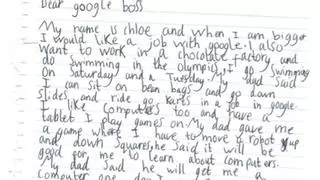 Dear google boss
My name is chloe and when I am bigger
I would like a job with google. I also
want to work in a chocolate factory and
do swimming in the olympics. I go swimming
On Saturday and a Tuesday. My dad said
I can sit on bean bags and go down
slides and ride go karts in a job in google.
I like computers too and have a
tablet I play games on. My dad gave me
a game where I have to move a robot up
and down squares, he said it will be
good for me to learn about computers.
My dad said he will get me a
computer one day. I